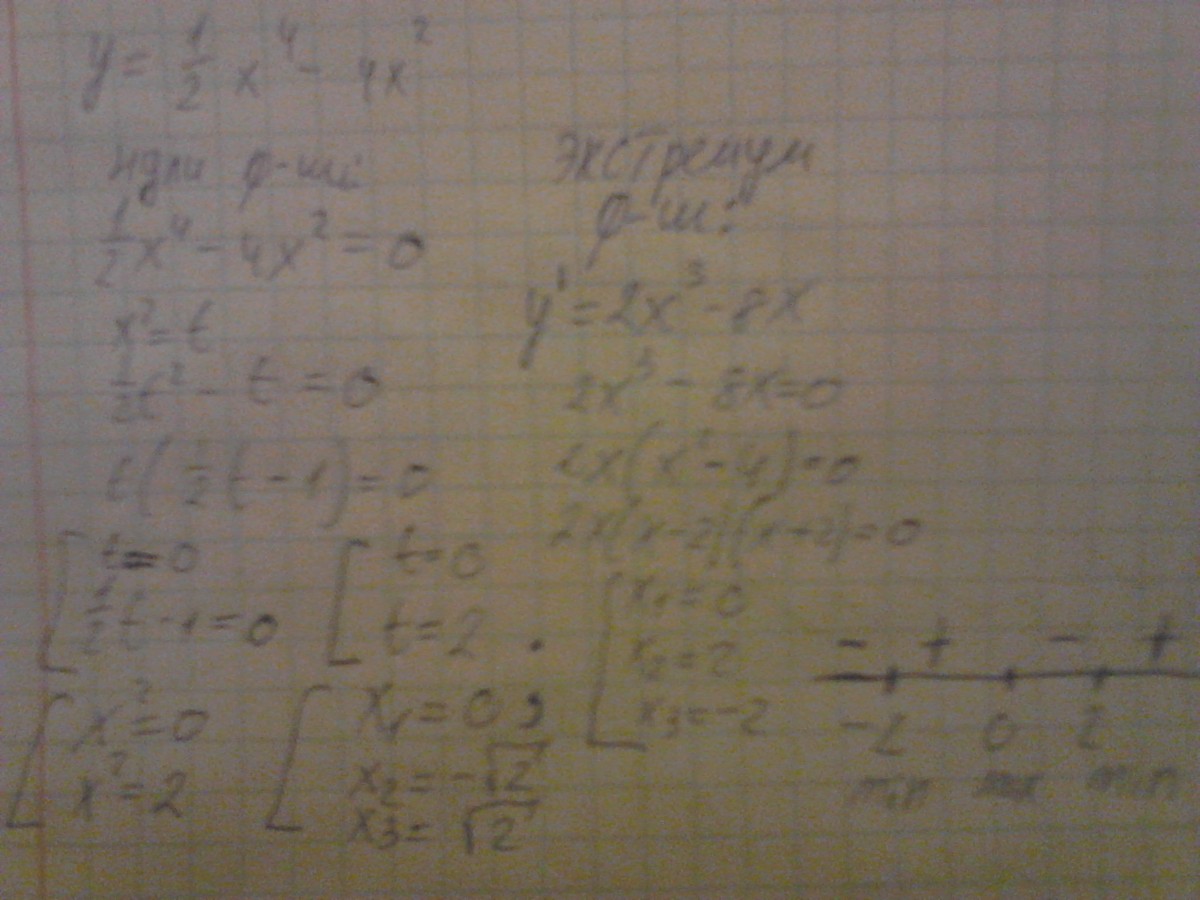 y = 1/2 x⁴ - 4x²
нули ф-ии:
1/2 x⁴ - 4x² = 0
x² = t
1/2 t² - t = 0
t(1/2 t - 1) = 0
[ t = 0
1/2 t - 1 = 0
[ t = 0
t = 2 .
[ x² = 0
x² = 2
[ x₁ = 0 ;
x₂ = -√2
x₃ = √2
экстремум
ф-ии:
y' = 2x³ - 8x
2x³ - 8x = 0
2x(x² - 4) = 0
2x(x-2)(x+2) = 0
[ x₁ = 0
x₂ = 2
x₃ = -2
- + - +
-2 0 2
min max min